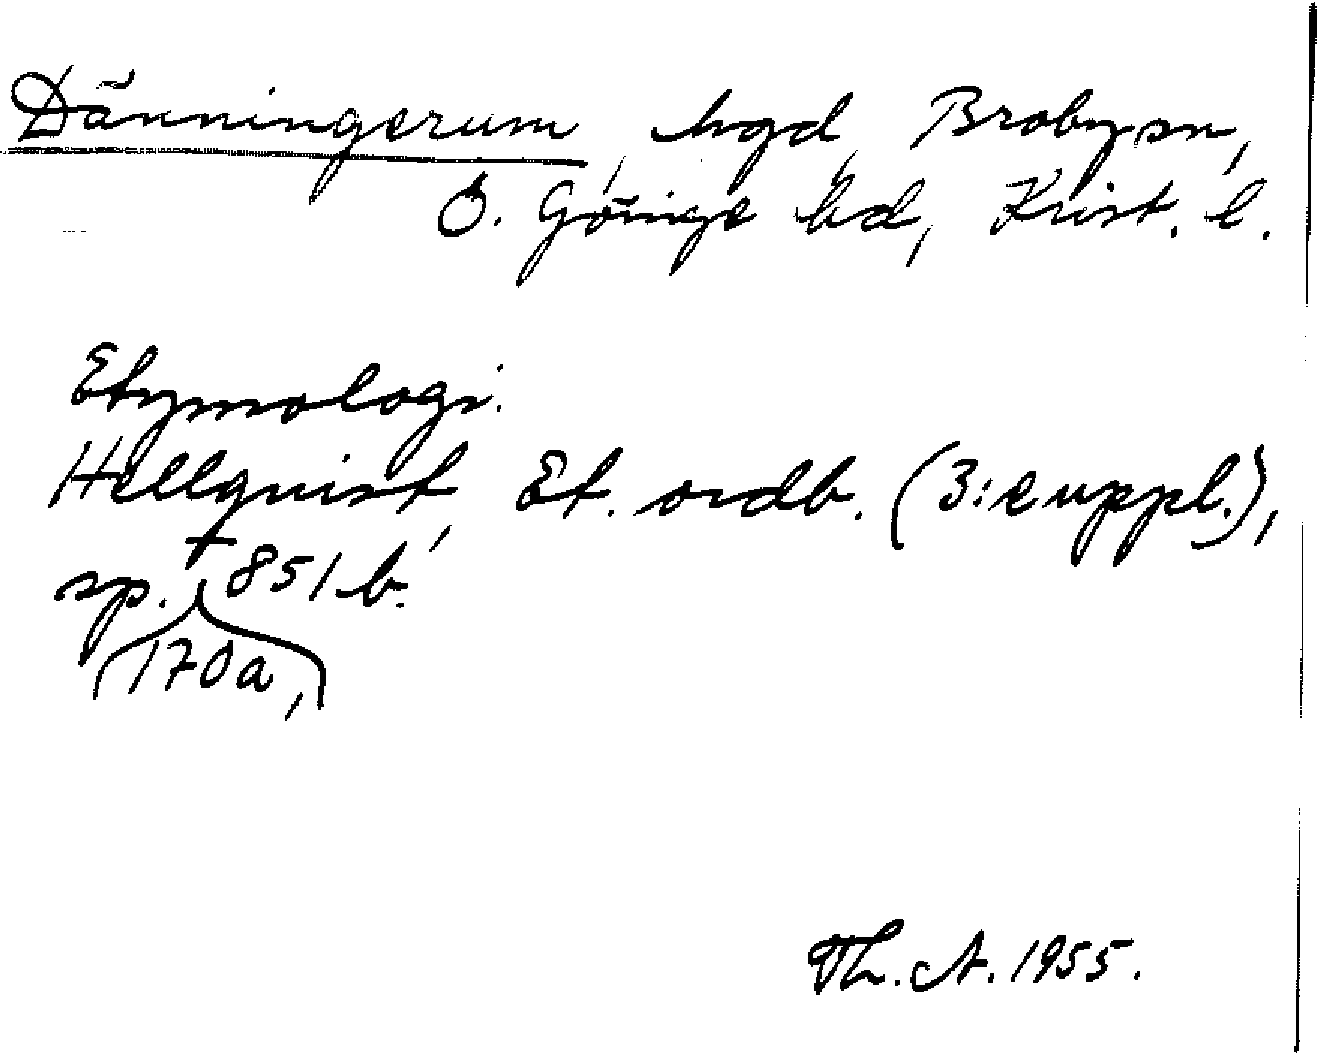 Dänningerum, hgd, Broby sn,
Ö. Göinge hd, Krist. l.
Etymologi.
Hellqvist, Et. ordb. (3:e uppl.),
sp. 851 b.
170a,
Th. A. 1955.